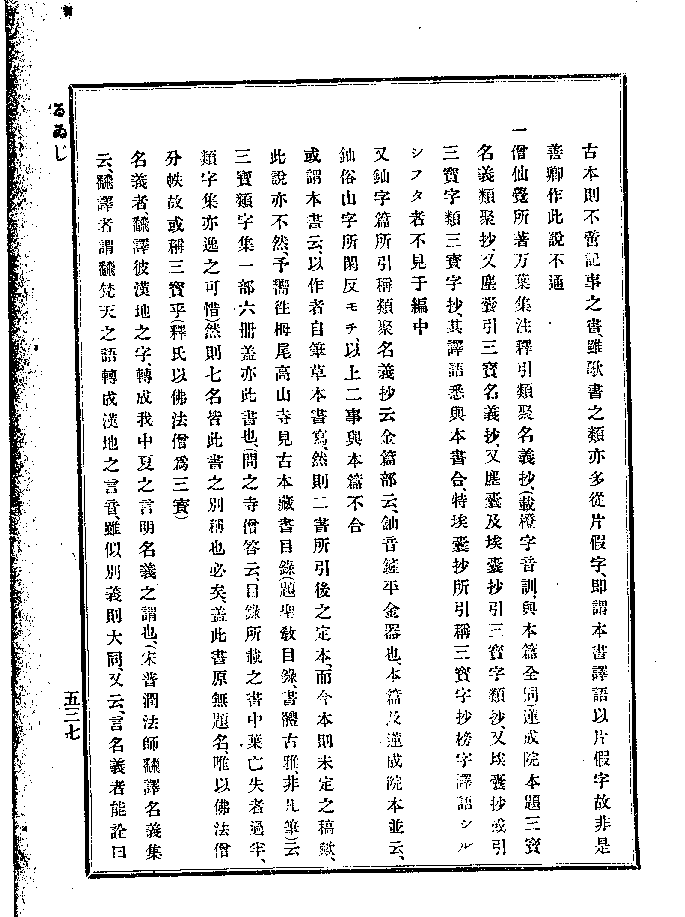 るゐじ
古本則不啻記事之書、雖歌書之類亦多從片假字、卽謂本書譯語以片假字故非是
善卿作此說不通
一僧仙覺所著万葉集注釋引類聚名義抄、(載橙字音訓、與本篇全同)蓮成院本題三寶
名義類聚抄、又塵嚢引三寶名義抄、又塵嚢及埃嚢抄引三寶字類抄、又埃嚢抄或引
三寶字類三寶字抄、其譯語悉與本書合、特埃嚢抄所引稱三寶字抄榜字譯語シル
シフタ者不見于編中
又釶字篇所引稱類聚名義抄云金篇部云、釶音纏平金器也、本篇及蓮成院本並云、
釶俗山字所閑反モチ、以上二事與本篇不合
或謂本書云、以作者自筆草本書寫、然則二書所引後之定本、而今本則未定之稿歟、
此說亦不然、予嚮徃栂尾高山寺見古本藏書目錄(題聖敎目錄書體古雅、非凡筆)云
三寶類字集一部六册盖亦此書也、(問之寺僧答云、目錄所載之書中葉亡失者過半、
類字集亦逸之可惜)然則七名皆此書之別稱也必矣、盖此書原無題名、唯以佛法僧
分帙故或稱三寶乎(釋氏以佛法僧爲三寶)
名義者飜譯彼漢地之字、轉成我中夏之言明名義之謂也、(宋普潤法師飜譯名義集
云、飜譯者謂飜梵天之語轉成漢地之言音、雖似別義則大同、又云、言名義者能詮曰
五三七